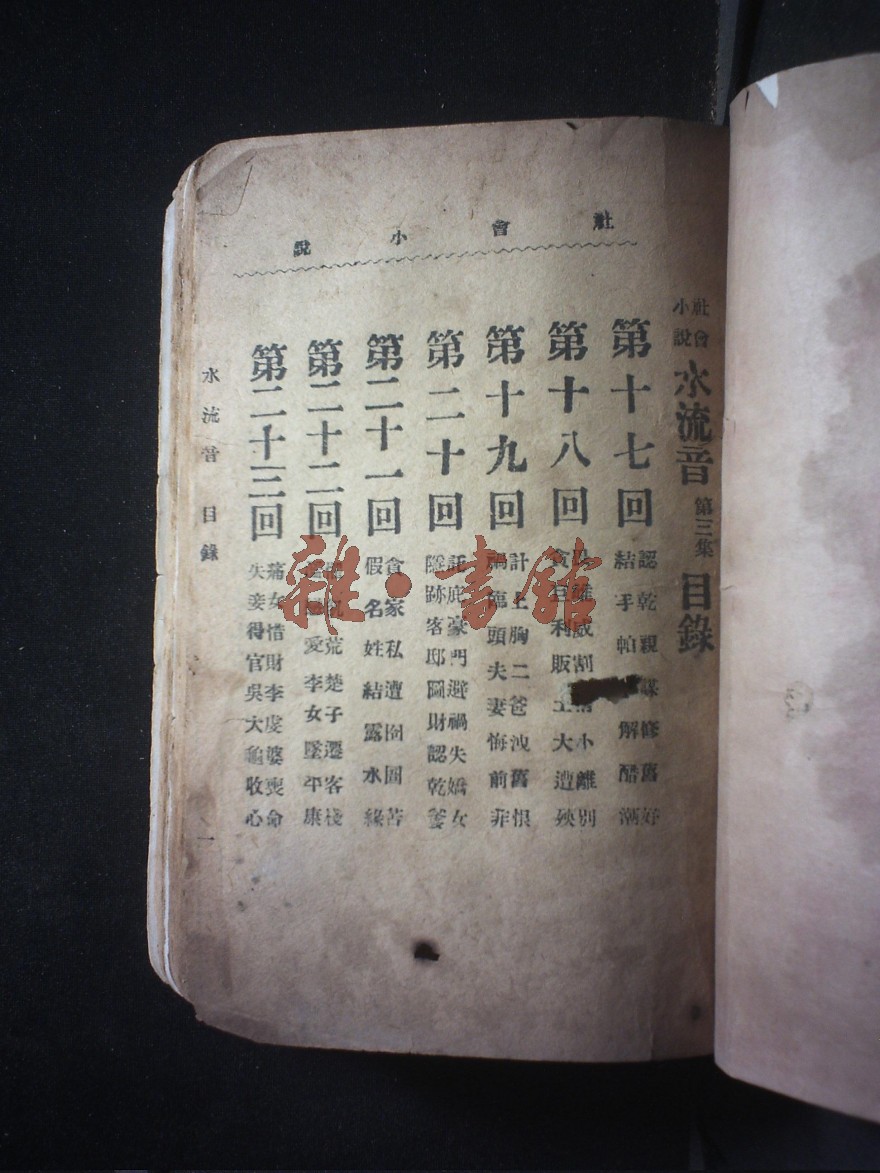 社會小說
社會小說 水流音 第三集 目錄
第十七回 認乾親謀修舊好
結手帕 解酷潮
第十八回 割 小離別
貪巨利販土大遭殃
第十九回 計上胸二爸洩舊恨
禍臨頭夫妻悔前非
第二十回 託庇豪門避禍失嬌女
隱跡客邸圖財認乾爹
第二十一回 貪家私遭囹圄苦
假名姓結露水緣
第二十二回 荒楚子遷客棧
愛李女墜平康
第二十三回 蒲女惜財李虔婆喪命
失妾得官吳大龜收心
水流音 目錄 一
雜·書館